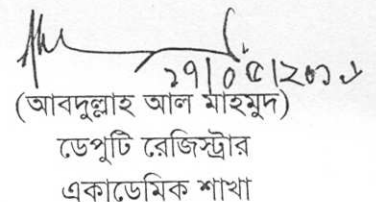 ২৭|০৫|২০১৮
(আবদুল্লাহ আল মাহমুদ)
ডেপুটি রেজিস্ট্রার
একাডেমিক শাখা